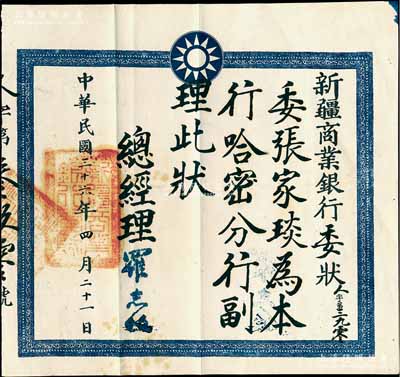 新疆商業銀行委狀
委張家琰為本
行哈密分行副
理此狀
總經理羅志
中華民國三十六年四月二十一日
號